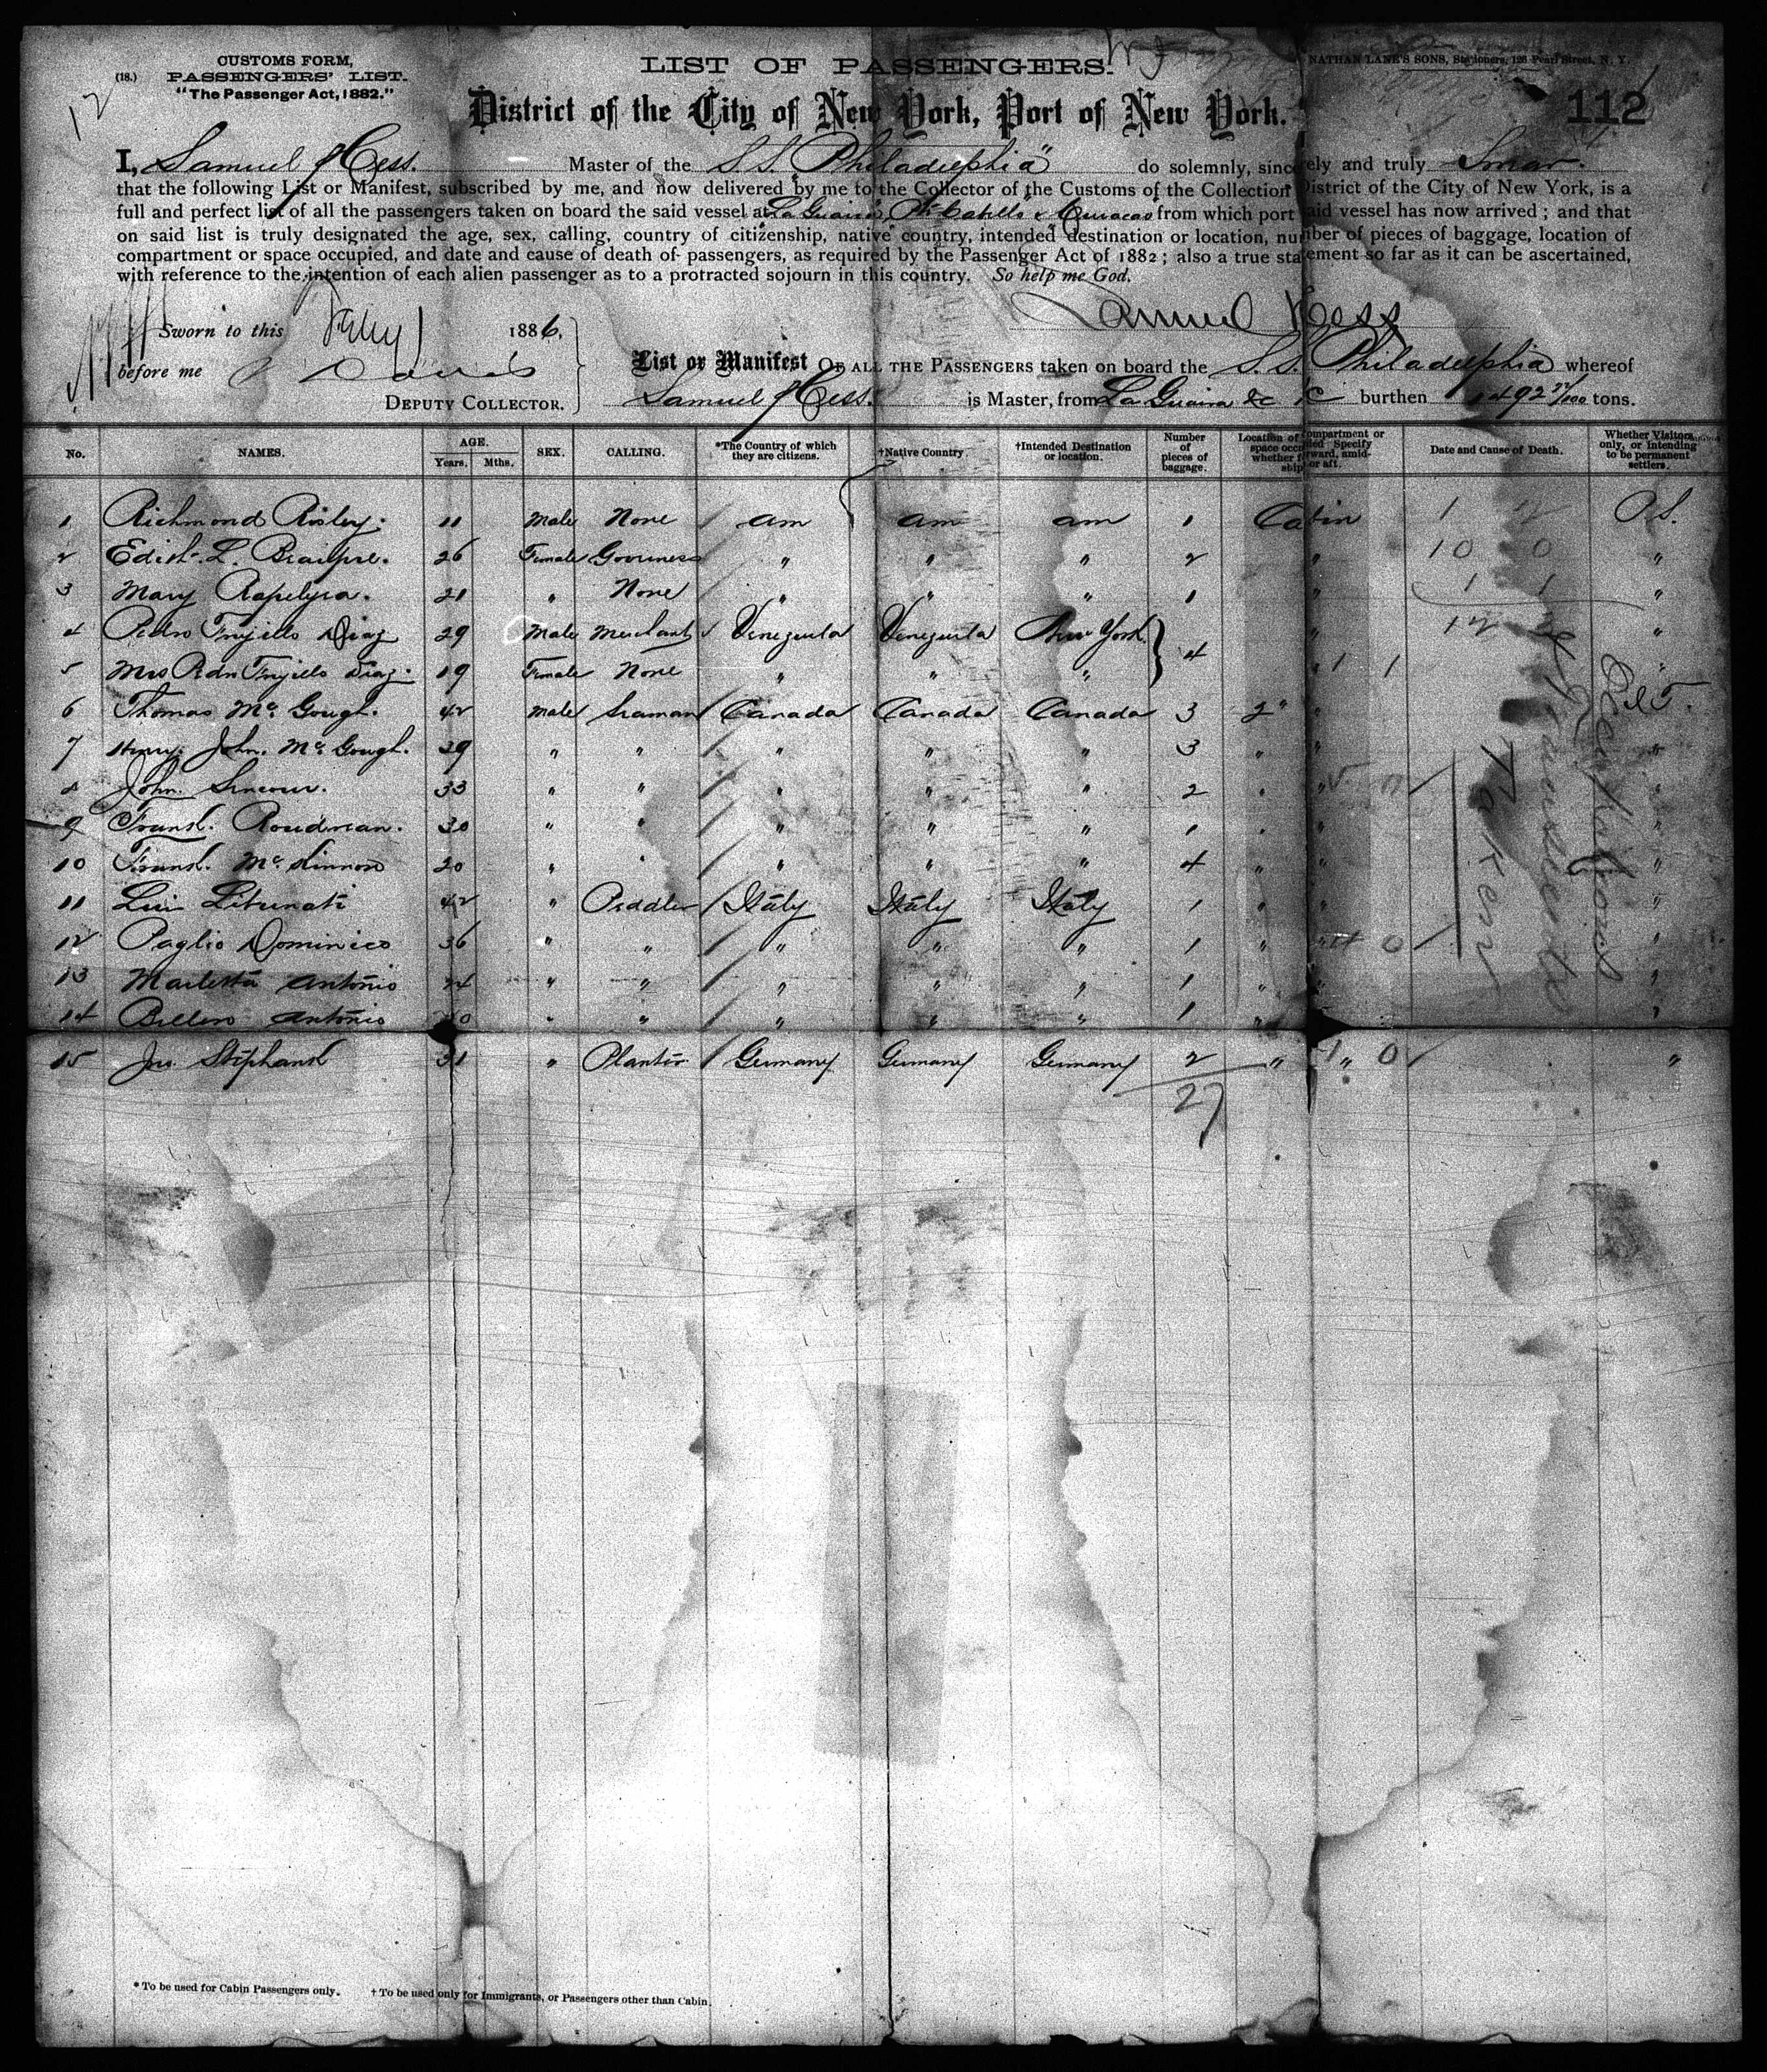 CUSTOMS FORM,
(18.) PASSENGERS' LIST.
"The Passenger Act, 1882."
12
LIST OF PASSENGERS.
NATHAN LANE'S SONS, Stationers, 128 Pearl Street, N. Y.
District of the City of New York, Port of New York.
112
I, Samuel Hess. Master of the S.S. "Philadelphia" do solemnly, sincerely and truly Swear.
that the following List or Manifest, subscribed by me, and now delivered by me to the Collector of the Customs of the Collection District of the City of New York, is a
full and perfect list of all the passengers taken on board the said vessel at La Guaira, Pto Cabello & Curacao from which port said vessel has now arrived; and that
on said list is truly designated the age, sex, calling, country of citizenship, native country, intended destination or location, number of pieces of baggage, location of
compartment or space occupied, and date and cause of death of passengers, as required by the Passenger Act of 1882; also a true statement so far as it can be ascertained,
with reference to the intention of each alien passenger as to a protracted sojourn in this country. So help me God.
Samuel Hess
Sworn to this Feby 1 1886,
before me Davis
DEPUTY COLLECTOR.
List or Manifest OF ALL THE PASSENGERS taken on board the S.S. Philadelphia whereof
Samuel Hess. is Master, from La Guaira &c burthen 1492 tons.
No. NAMES. AGE. Years. Mths. SEX. CALLING. *The Country of which they are citizens. †Native Country. †Intended Destination or location. Number of pieces of baggage. Location of compartment or space occupied Specify whether forward, amidship or aft. Date and Cause of Death. Whether Visitors only, or intending to be permanent settlers.
1 Richmond Risley. 11 Male None am am am 1 Cabin
2 Edith L. 26 Female Governess " " " 2 " "
3 Mary Rapelyea. 21 " None " " " 1 " "
4 Pedro Trujillo Diaz 29 Male Merchant Venezuela Venezuela New York } 4 " "
5 Mrs Pdro Trujillo Diaz. 19 Female None " " " "
6 Thomas Mc Gough. 42 Male Seaman Canada Canada Canada 3 2" "
7 Henry John Mc Gough. 29 " " " " " 3 " " "
8 John 33 " " " " " 2 " " "
9 Frank Roudman. 30 " " " " " 1 " " "
10 Frank Mc Kinnon 20 " " " " " 4 " " "
11 Lui Liturati 42 " Peddler Italy Italy Italy 1 " " "
12 Paglio Dominico 36 " " " " " 1 " " "
13 Marletta Antonio 24 " " " " " 1 " " "
14 Bellero Antonio " " " " " 1 " "
15 Jno. Stephank 31 " Planter Germany Germany Germany 2 " " "
27
* To be used for Cabin Passengers only. † To be used only for Immigrants, or Passengers other than Cabin.